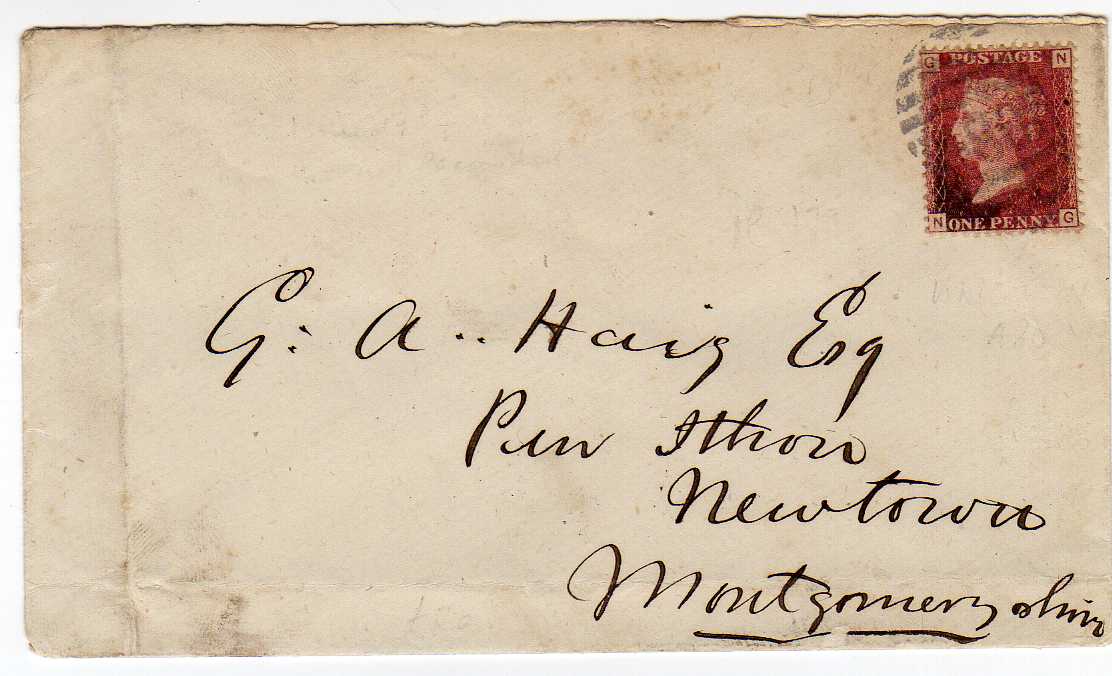 G POSTAGE N
N ONE PENNY G
G. A.. Haig Esq
Pen Ithon
Newtown
Montgomeryshire